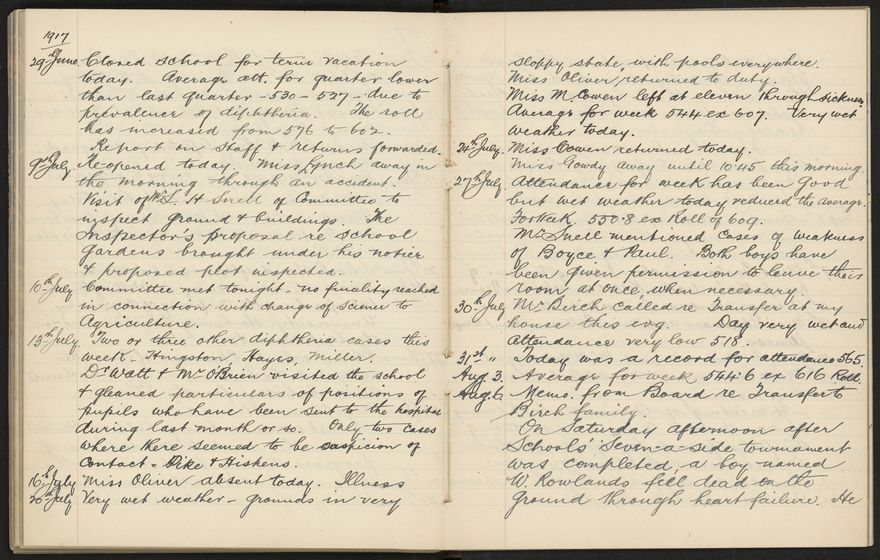 1917
29th June. Closed school for term vacation
today. Average att. for quarter lower
than last quarter - 530 - 527 - due to
prevalence of diphtheria. The roll
has increased from 576 to 602.
Report on Staff & returns forwarded.
9th July. Re-opened today. Miss Lynch away in
the morning through an accident.
Visit of Mr L. H Snell of Committee to
inspect ground & buildings. The
Inspector's proposal re school
Gardens brought under his notice
& proposed plot inspected.
10th July Committee met tonight - no finality reached
in connection with change of Science to
Agriculture.
13th July. Two or three other diphtheria cases this
week - Kingston Hayes, Miller.
Dr Watt & Mr O'Brien visited the school
& gleaned particulars of positions of
pupils who have been sent to the hospital
during last month or so. Only two cases
where there seemed to be suspicion of
Contact - Pike & Hiskens.
16th July Miss Oliver absent today. Illness
20th July Very wet weather - grounds in very
sloppy state, with pools everywhere.
Miss Oliver returned to duty.
Miss M. Cowen left at eleven through sickness
Average for week 544 ex 607. Very wet
weather today.
24th July. Miss Cowen returned today.
Miss Gowdy away until 10.45 this morning.
27th July Attendance for week has been good
but wet weather today reduced the average.
For Week. 550.8 ex Roll of 609.
Mr Snell mentioned cases of weakness
of Boyce & Paul. Both boys have
been given permission to leave their
room at once when necessary
30th July Mr Birch called re Transfer at my
house this evg. Day very wet and
attendance very low 518.
31st " Today was a record for attendance 565.
Aug. 3. Average for week 544.6 ex 616 Roll.
Aug 6. Memo. from Board re Transfer to
Birch family.
On Saturday afternoon after
Schools' Seven-a-side tournament
was completed, a boy named
W. Rowlands fell dead on the
ground through heart failure. He